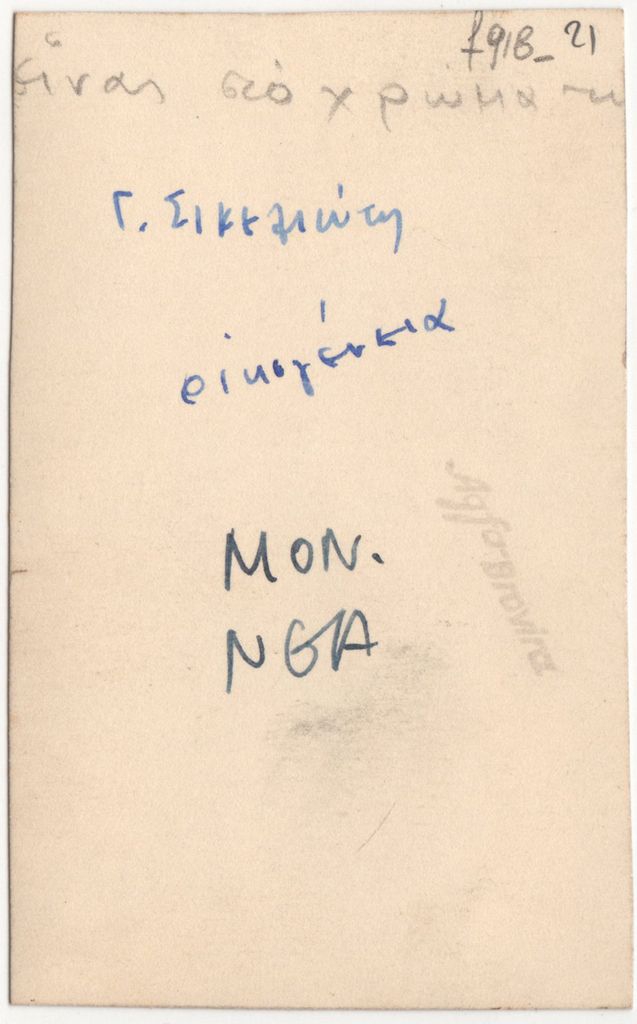 f918-21
εἶναι στό χρῶμα τῆ
Γ. Σικελιώτη
οἰκογένεια
MON.
NGA